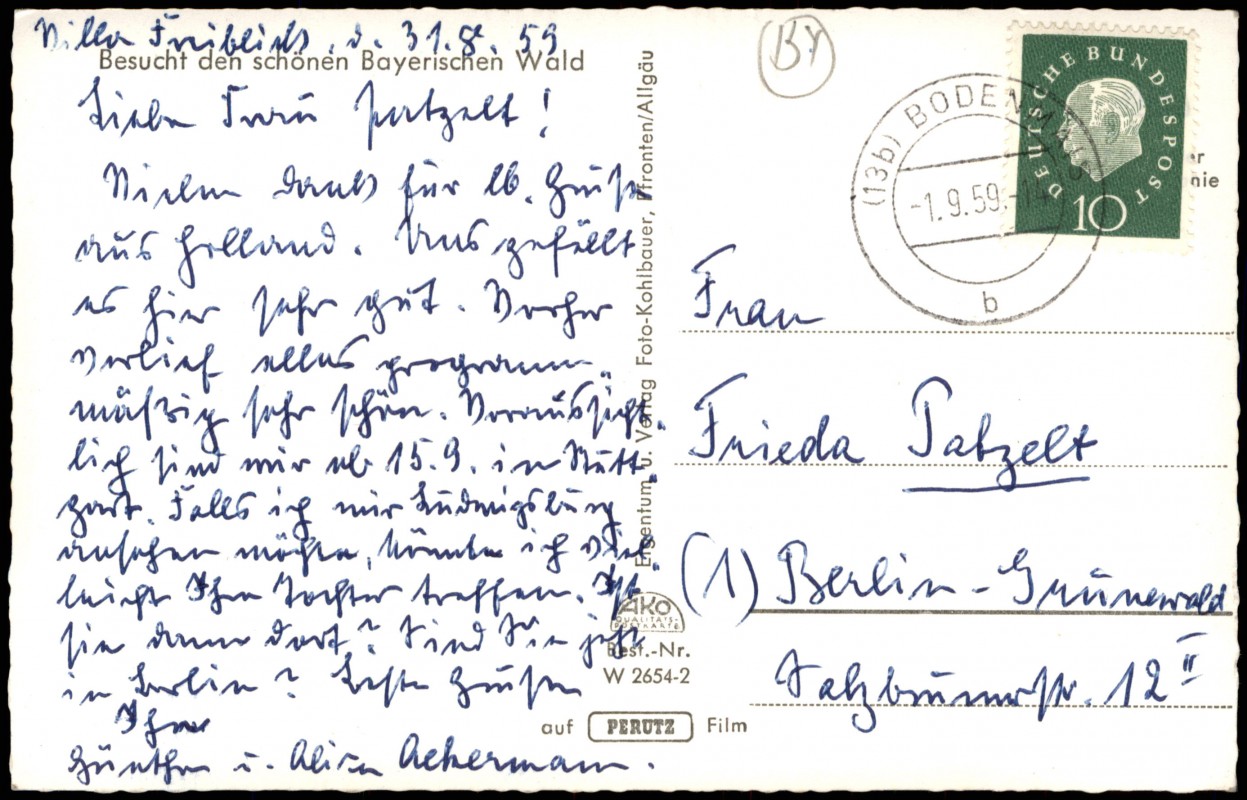 Villa Fröhlich, d. 31.8.59
Besucht den schönen Bayerischen Wald
Liebe Frau Patzelt!
Vielen Dank für lb. Grüße
aus Holland. Uns gefällt
es hier sehr gut. Vorher
verlief alles programm-
mäßig sehr schön. Voraussicht-
lich sind wir ab 15.9. in Stutt-
gart. Falls ich mir Ludwigsburg
ansehen möchte, könnte ich viel-
leicht Ihre Tochter treffen. Ist
sie dann dort? Sind Sie jetzt
in Berlin? Beste Grüße
Ihre
Günther u. Ackermann.
Eigentum u. Verlag Foto-Kohlbauer, Pfronten/Allgäu
AKO
QUALITÄTS-
POSTKARTE
Best.-Nr.
W 2654-2
auf PERUTZ Film
BY
(13b) BODENMAIS
-1.9.59.-14
b
DEUTSCHE BUNDESPOST
10
Frau
Frieda Patzelt
(1) Berlin-Grunewald
Salzbrunnerstr. 12 II